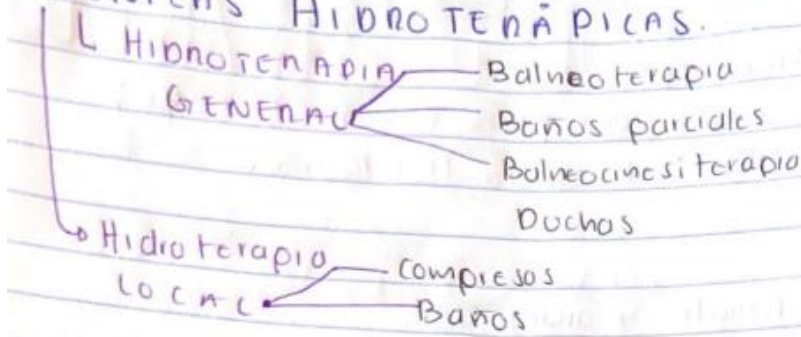 HIDROTERÁPICAS.
HIDROTERAPIA
GENERAL
Balneoterapia
Baños parciales
Balneocinesiterapia
Duchas
Hidroterapia
LOCAL
Compresas
Baños